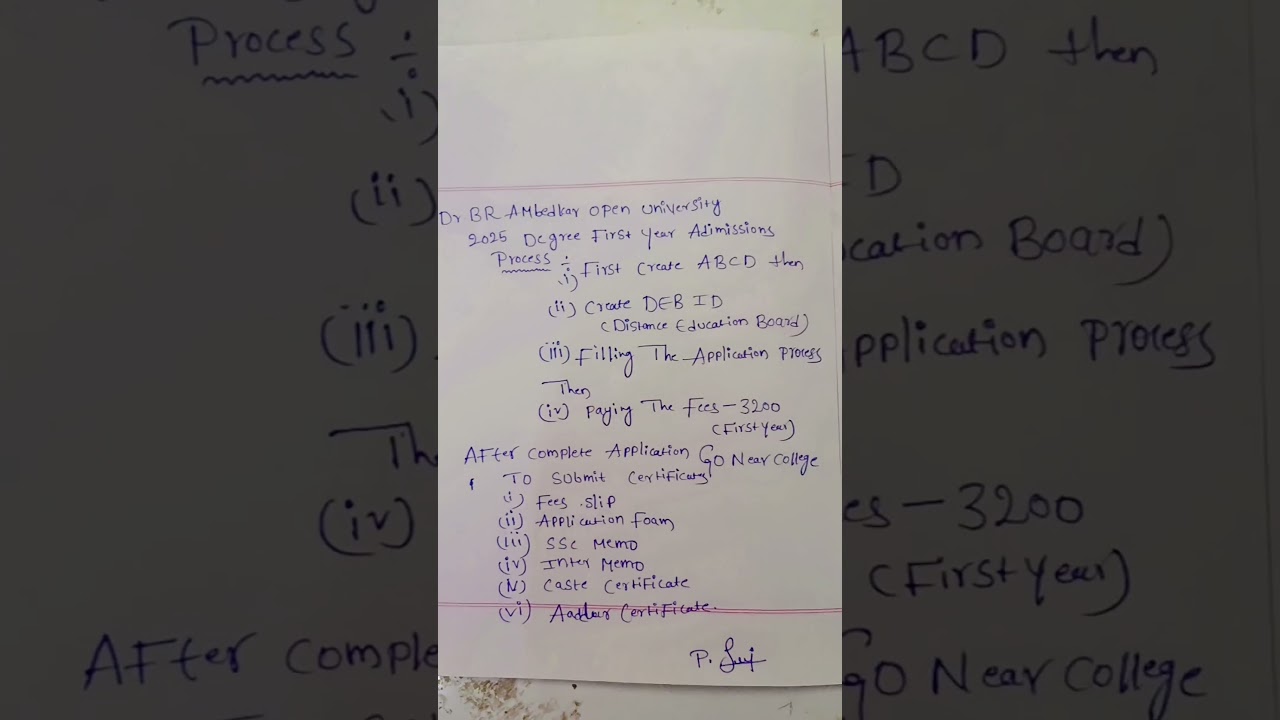 Dr BR AMbedkar open university
2025 Degree First year Adimissions
Process ÷
i) First Create ABCD then
(ii) Create DEB ID
(Distance Education Board)
(iii) Filling The Application Process
Then
(iv) Paying The Fees - 3200
(First year)
After Complete Application Go Near College
To Submit Certificates
i) Fees slip
(ii) Application Foam
(iii) SSC Memo
(iv) Inter Memo
(v) Caste Certificate
(vi) Aadhar Certificate.
P.